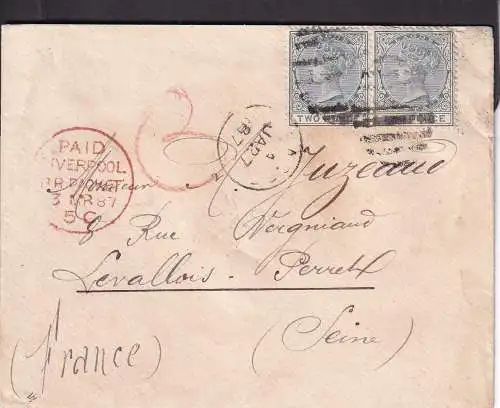 TWO PENCE
PAID
LIVERPOOL
BR. PACKET
3 MR 87
5 C
JA 27
87
A
Monsieur Auzeau
8 Rue Vergniaud
Levallois-Perret
(Seine)
(France)